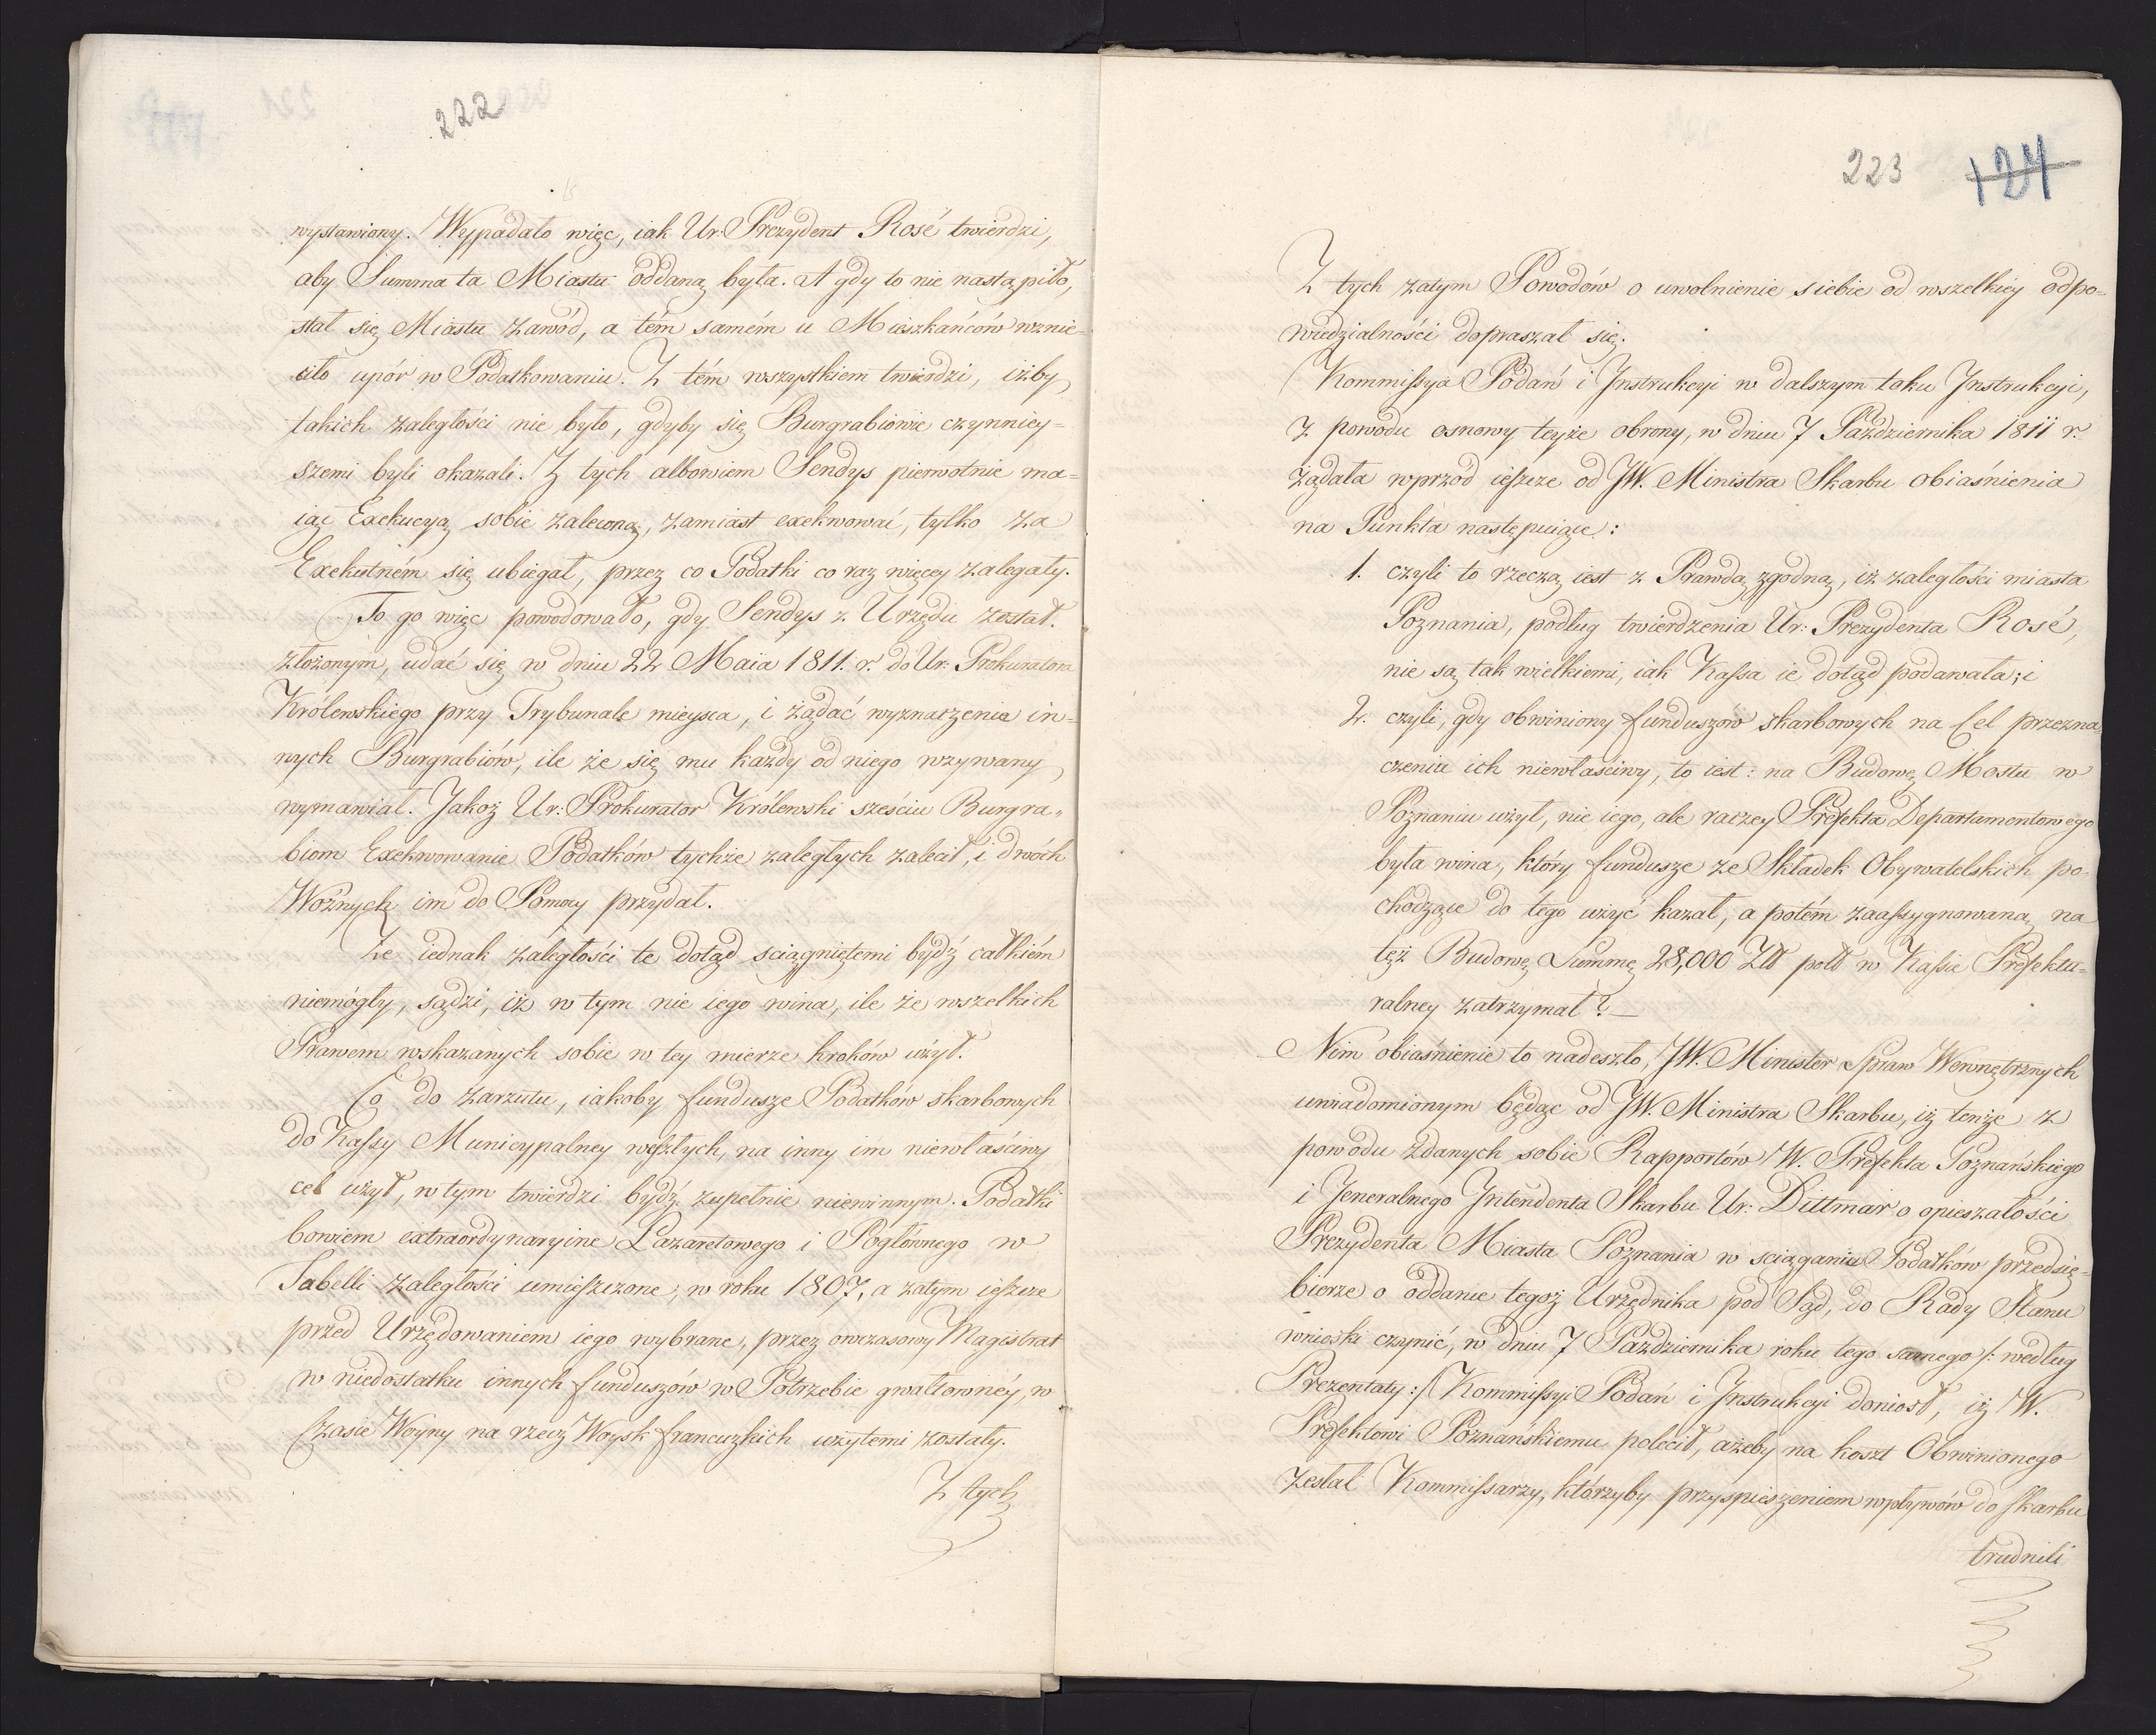 222
wystawiony. Wypadało więc, iak Ur: Prezydent Rosé twierdzi,
aby Summa ta Miastu oddaną była. A gdy to nie nastąpiło,
stał się Miastu zawód, a tém samém u Mieszkańców wznie-
ciło upór w Podatkowaniu. Z tém wszystkiem twierdzi, iżby
takich zaległości nie było, gdyby się Burgrabiowie czynniey-
szemi byli okazali. Z tych albowiem Sendys pierwotnie ma-
iąc Exekucyą sobie zaleconą, zamiast exekwować, tylko za
Exekutném się ubiegał, przez co Podatki co raz więcey zalegały.
To go więc powodowało, gdy Sendys z Urzędu został
złożonym, udać się w dniu 22 Maia 1811. r. do Ur: Prokuratora
Królewskiego przy Trybunale mieysca, i żądać wyznaczenia in-
nych Burgrabiów, ile że się mu każdy od niego wzywany
wymawiał. Jakoż Ur: Prokurator Królewski sześciu Burgra-
biom Exekwowanie Podatków tychże zaległych zalecił, i dwóch
Woźnych im do Pomocy przydał.
Że iednak zaległości te dotąd sciągniętemi bydź całkiém
niemógły, sądzi, iż w tym nie iego wina, ile że wszelkich
Prawem wskazanych sobie w tey mierze kroków użył.
Co do zarzutu, iakoby fundusze Podatków skarbowych
do Kassy Municypalney weszłych, na inny im niewłaściwy
cel użył, w tym twierdzi bydź zupełnie niewinnym. Podatki
bowiem extraordynaryine Lazaretowego i Pogłównego w
Tabelli zaległości umieszczone, w roku 1807, a zatym ieszcze
przed Urzędowaniem iego wybrane, przez owczasowy Magistrat
w niedostatku innych funduszów w Potrzebie gwałtowney, w
Czasie Woyny na rzecz Woysk francuzkich użytemi zostały.
Z tych
223 124
Z tych zatym Powodów o uwolnienie siebie od wszelkiey odpo-
wiedzialności dopraszał się.
Kommissya Podań i Jnstrukcyi w dalszym toku Jnstrukcyi,
z powodu osnowy teyże obrony, w dniu 7 Października 1811 r.
żądała wprzód ieszcze od JW. Ministra Skarbu obiaśnienia
na Punkta następuiące:
1. czyli to rzeczą iest z Prawdą zgodną, iż zaległości miasta
Poznania, podług twierdzenia Ur: Prezydenta Rosé,
nie są tak wielkiemi, iak Kassa ie dotąd podawała; i
2. czyli, gdy obwiniony funduszów skarbowych na Cel przezna
czeniu ich niewłaściwy, to iest: na Budowę Mostu w
Poznaniu użył, nie iego, ale raczey Prefekta Departamentowego
była wina, który fundusze ze Składek Obywatelskich po-
chodzące do tego użyć kazał, a potém zaassygnowaną na
tęż Budowę Summę 28,000 Zł pold w Kassie Prefektu-
ralney zatrzymał? —
Nim obiaśnienie to nadeszło, JW. Minister Spraw Wewnętrznych
uwiadomionym będąc od JW. Ministra Skarbu, iż tenże z
powodu zdanych sobie Rapportów W. Prefekta Poznańskiego
i Jeneralnego Jntendenta Skarbu Ur: Dittmar o opieszałości
Prezydenta Miasta Poznania w sciąganiu Podatków przedsię-
bierze o oddanie tegoż Urzędnika pod Sąd, do Rady Stanu
wnioski czynić, w dniu 7 Października roku tego samego /: według
Prezentaty :/ Kommissyi Podań i Jnstrukcyi doniosł, iż W.
Prefektowi Poznańskiemu polecił, ażeby na koszt Obwinionego
zesłał Kommissarzy, którzyby przyspieszeniem wpływów do skarbu
trudnili